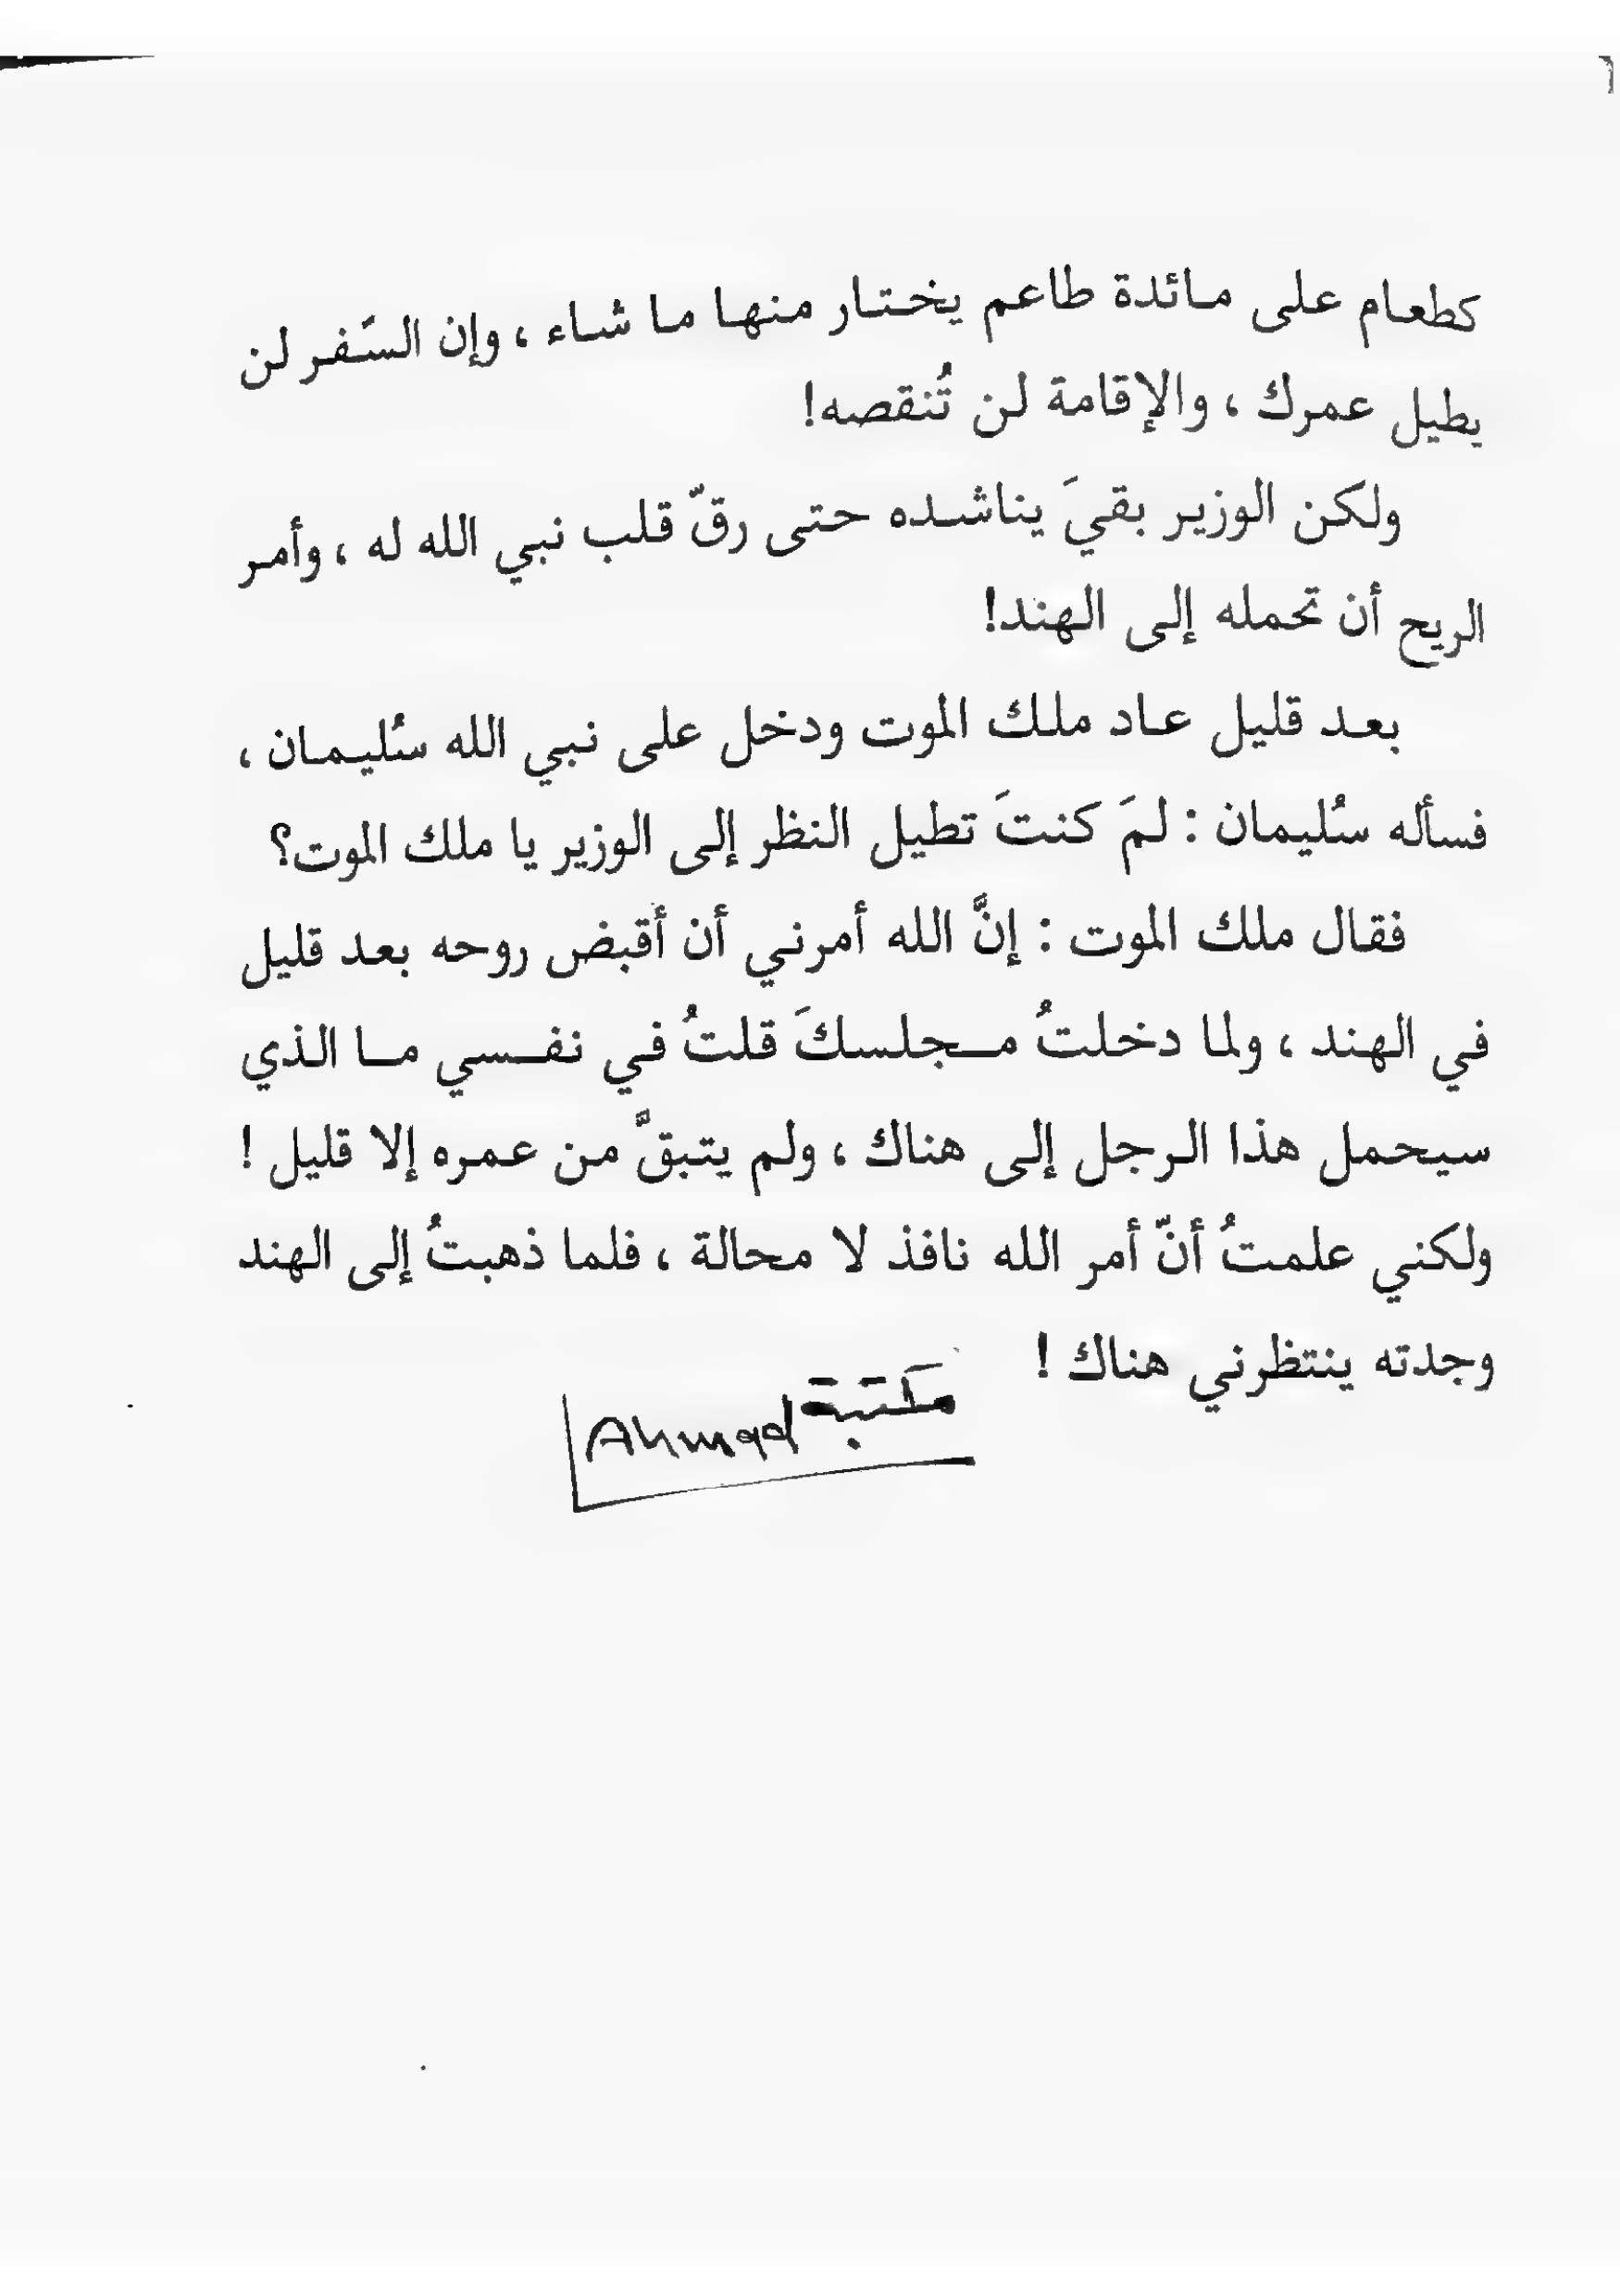 كطعام على مائدة طاعم يختار منها ما شاء ، وإن السَفر لن
يطيل عمرك ، والإقامة لن تُنقصه!
ولكن الوزير بقيَ يناشده حتى رقّ قلب نبي الله له ، وأمر
الريح أن تحمله إلى الهند!
بعد قليل عاد ملك الموت ودخل على نبي الله سُليمان ،
فسأله سُليمان : لمَ كنتَ تطيل النظر إلى الوزير يا ملك الموت؟
فقال ملك الموت : إنَّ الله أمرني أن أقبض روحه بعد قليل
في الهند ، ولما دخلتُ مجلسكَ قلتُ في نفسي ما الذي
سيحمل هذا الرجل إلى هناك ، ولم يتبقَّ من عمره إلا قليل !
ولكني علمتُ أنّ أمر الله نافذ لا محالة ، فلما ذهبتُ إلى الهند
وجدته ينتظرني هناك !
مكتبة Ahmad